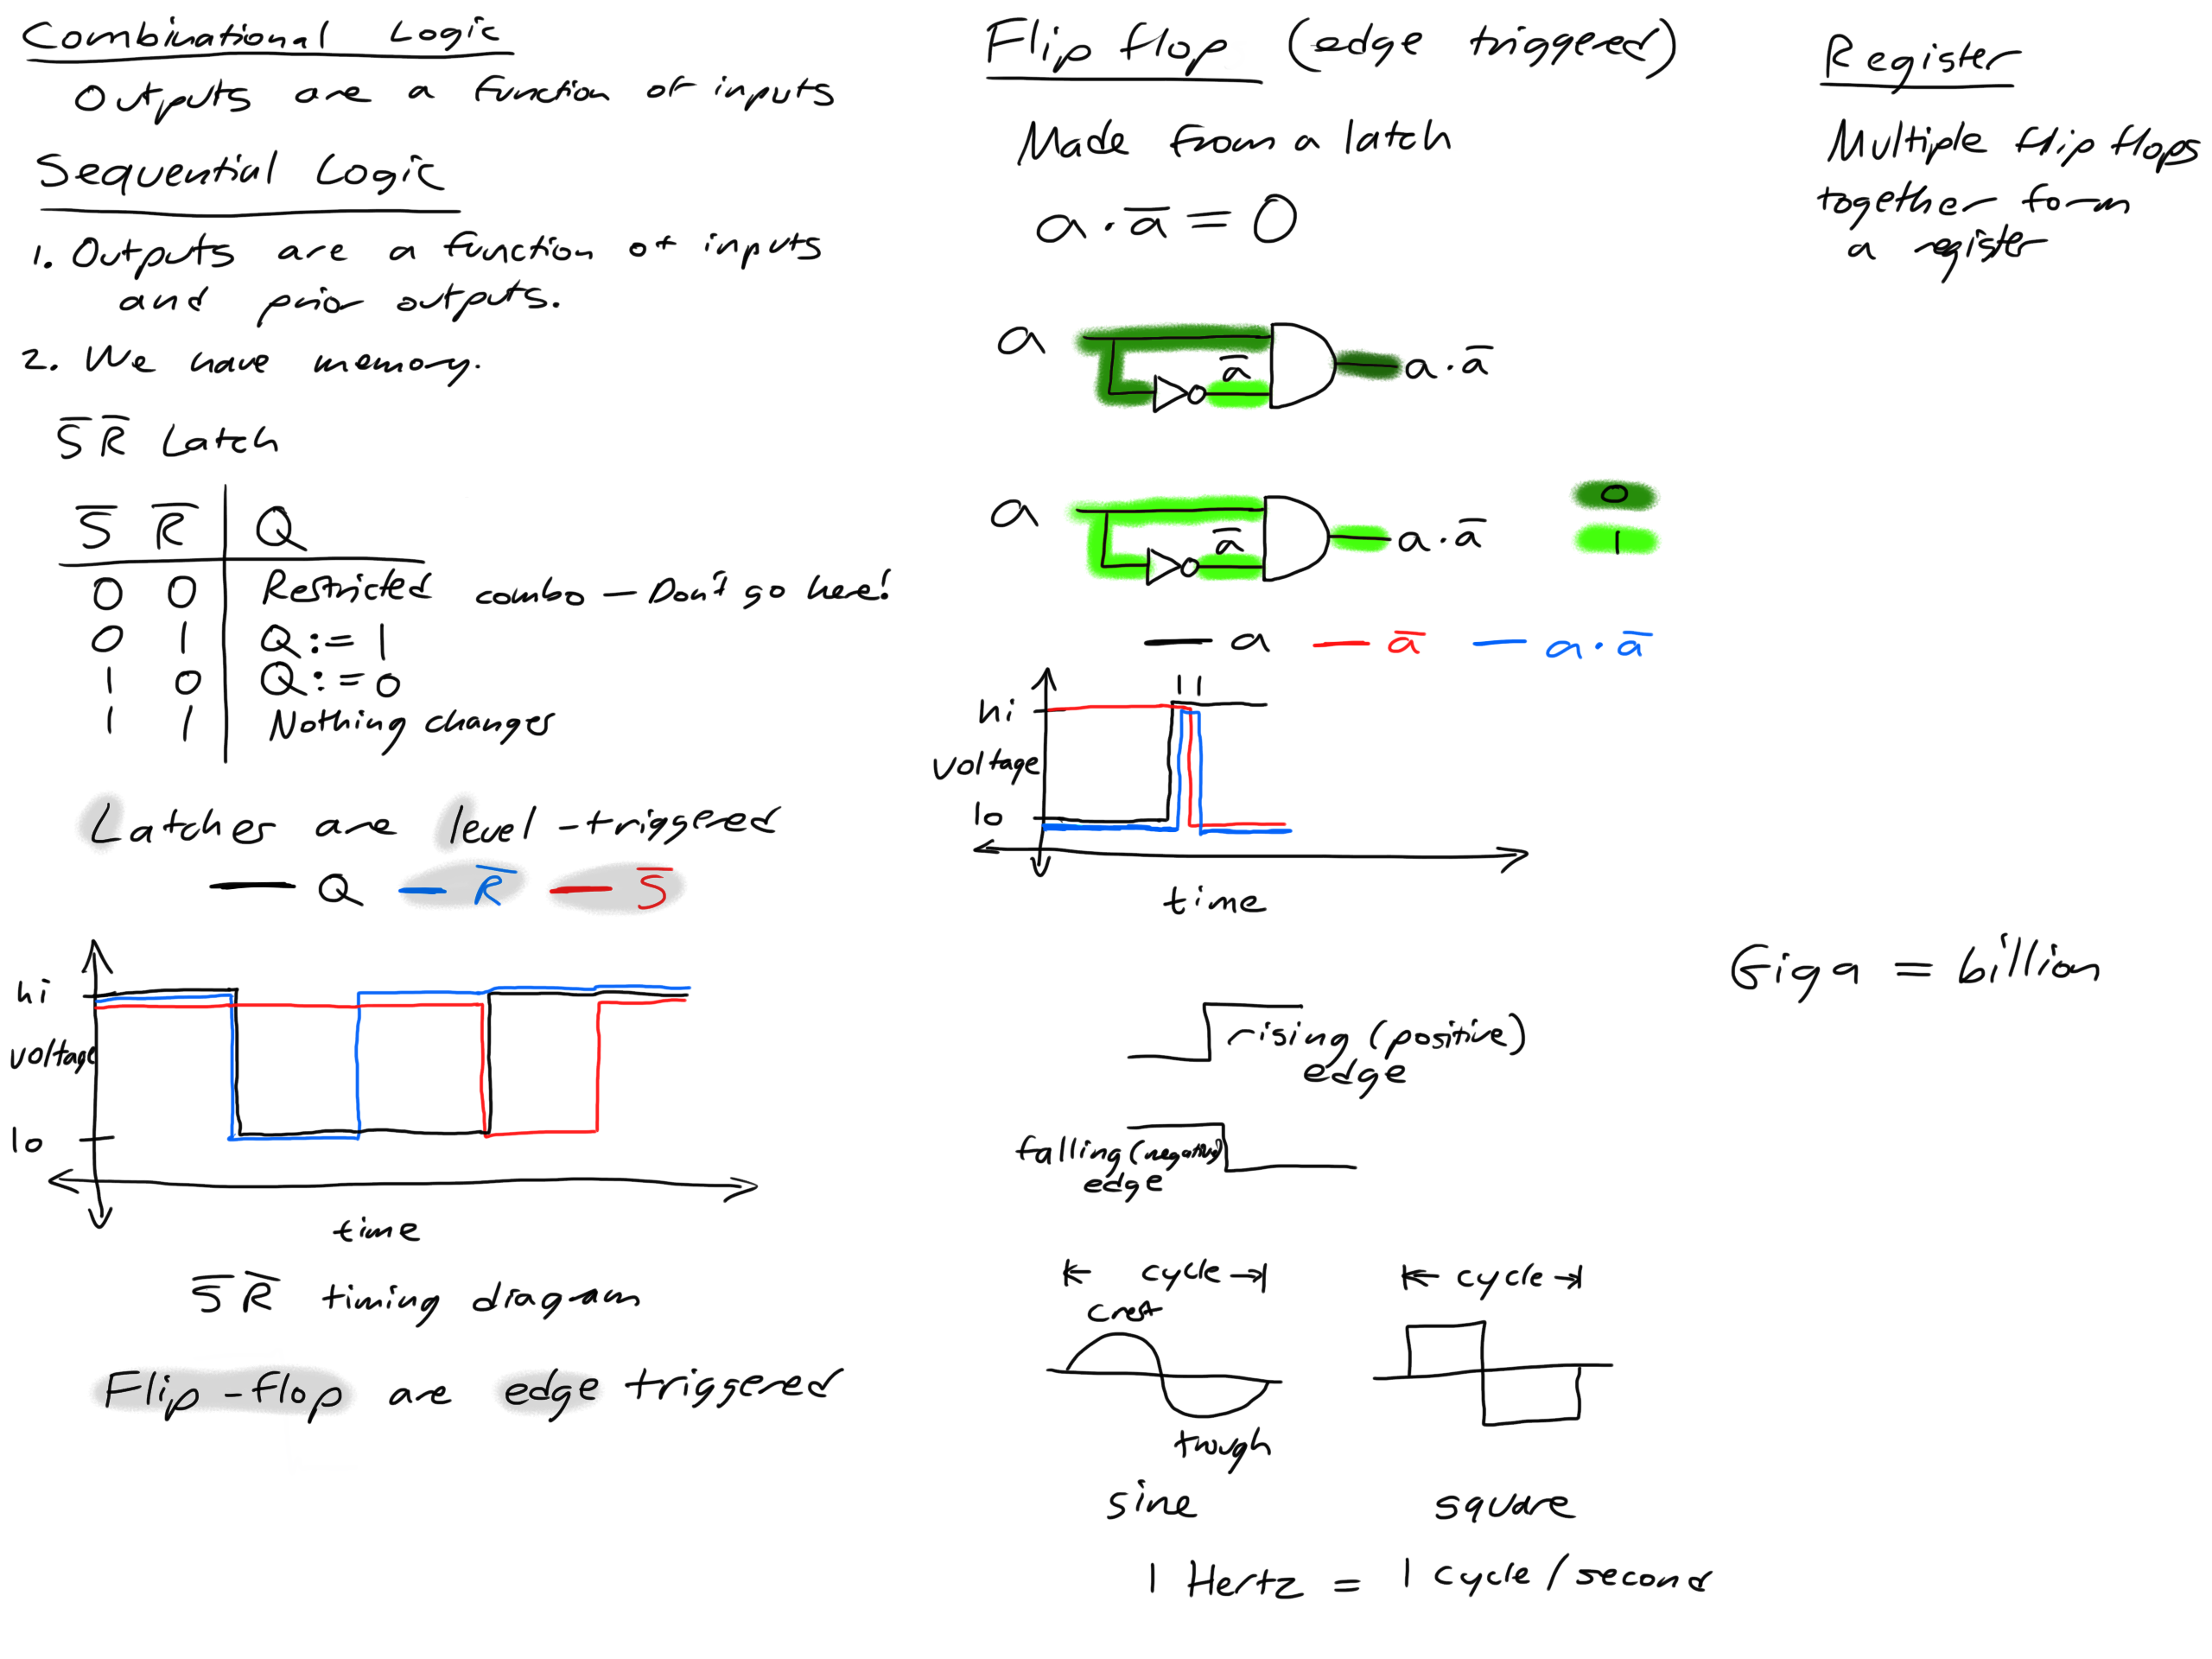 Combinational Logic
Outputs are a function of inputs
Sequential Logic
1. Outputs are a function of inputs
and prior outputs.
2. We have memory.
S̅ R̅ Latch
S̅ R̅ Q
0 0 Restricted combo – Don't go here!
0 1 Q := 1
1 0 Q := 0
1 1 Nothing changes
Latches are level-triggered
— Q — R̅ — S̅
hi
voltage
lo
time
S̅ R̅ timing diagram
Flip-flop are edge triggered
Flip flop (edge triggered)
Made from a latch
a · a̅ = 0
a a̅ a · a̅
a a̅ a · a̅
0
1
— a — a̅ — a · a̅
hi
voltage
lo
time
rising (positive)
edge
falling (negative)
edge
cycle
crest
trough
sine
cycle
square
1 Hertz = 1 cycle / second
Register
Multiple flip flops
together form
a register
Giga = billion